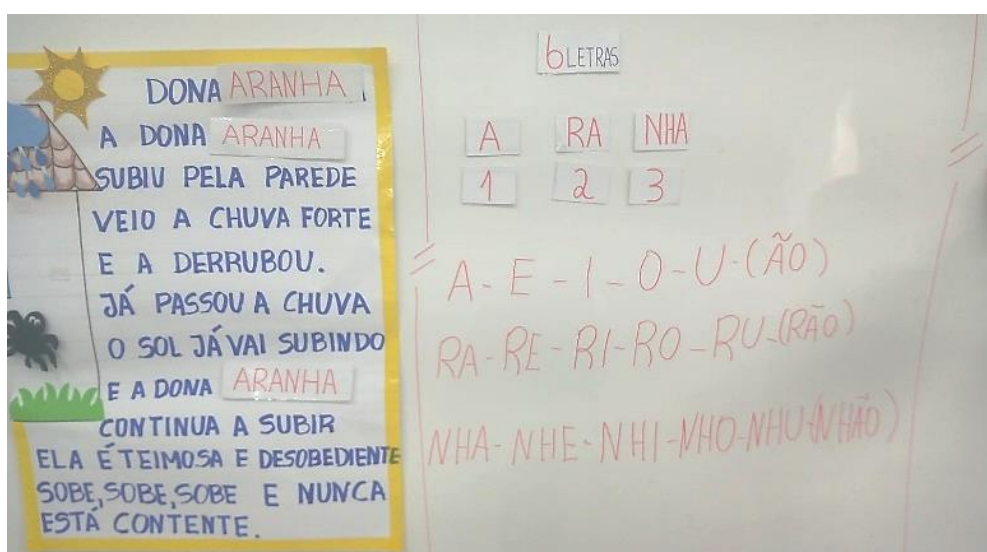 DONA ARANHA
A DONA ARANHA
SUBIU PELA PAREDE
VEIO A CHUVA FORTE
E A DERRUBOU.
JÁ PASSOU A CHUVA
O SOL JÁ VAI SUBINDO
E A DONA ARANHA
CONTINUA A SUBIR
ELA É TEIMOSA E DESOBEDIENTE
SOBE, SOBE, SOBE E NUNCA
ESTÁ CONTENTE.
6 LETRAS
A RA NHA
1 2 3
A - E - I - O - U - (ÃO)
RA - RE - RI - RO - RU - (RÃO)
NHA - NHE - NHI - NHO - NHU (NHÃO)